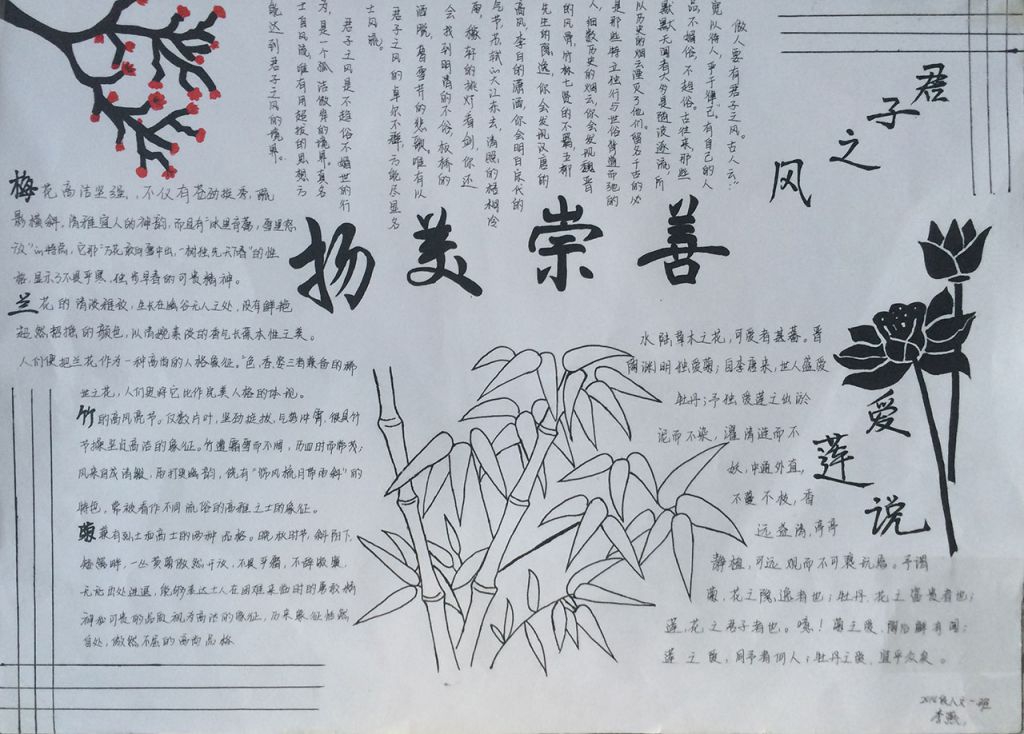 君子之风
做人要有君子之风。古人云：“
宽以待人，平于律己。有自己的人
品不媚俗，不超俗。古往来那些
默默无闻者大多是随波逐流，所
以历史的烟云湮灭了他们。留名千古的必
是那些特立独行与世俗背道而驰的
人。细数历史的烟云，你会发现魏晋
的风骨，竹林七贤的不羁，五柳
先生的隐逸，你会发现汉唐的
高风，李白的潇洒，你会明白宋代的
气节，苏轼的大江东去，清照的梧桐冷
雨，稼轩的挑灯看剑，你还
会找到明清的不俗，板桥的
洒脱，曹雪芹的悲观，唯有以
君子之风的卓尔不群，方能尽显名
士风流。
君子之风是不超俗不媚世的行
为，是一个孤洁傲岸的境界。真名
士自风流，唯有用超拔的思想方
能达到君子之风的境界。
扬美崇善
梅花高洁坚强，不仅有苍劲挺秀，疏
影横斜，清雅宜人的神韵，而且有“冰里育蕾，雪里怒
放”的特点，它那“万花敢向雪中出，一树独先天下春”的性
格，显示了不畏严寒，独步早春的可贵精神。
兰花的清淡雅致，生长在幽谷无人之处，没有鲜艳
的颜色，从清婉素淡的香气长葆本性之美。
人们便把兰花作为一种高尚的人格象征。“色、香、姿三者兼备的稀
世之花，人们更将它比作完美人格的体现。
竹的高风亮节。仪数片叶，坚劲挺拔，凡势冲霄，很具竹
节操坚贞高洁的象征。竹遭霜雪而不凋，历四时而常茂；
风来自成清籁，雨打更幽韵，饶有“临风抱月带雨斜”的
特色，常被看作不同流俗的高雅之士的象征。
菊兼有烈士和高士的两种品格。晚秋时节，斜阳下，
一丛黄菊傲然开放，不畏严霜，不辞寂寞，
无论出处进退，能够表达士人在困难来临时的勇敢精
神和可贵的品质视为高洁的象征，历来象征恬然
自处，傲然不屈的高尚品格
爱莲说
水陆草木之花，可爱者甚蕃。晋
陶渊明独爱菊；自李唐来，世人盛爱
牡丹；予独爱莲之出淤
泥而不染，濯清涟而不
妖，中通外直，
不蔓不枝，香
远益清，亭亭
静植，可远观而不可亵玩焉。予谓
菊，花之隐逸者也；牡丹，花之富贵者也；
莲，花之君子者也。噫！菊之爱，陶后鲜有闻；
莲之爱，同予者何人；牡丹之爱，宜乎众矣。